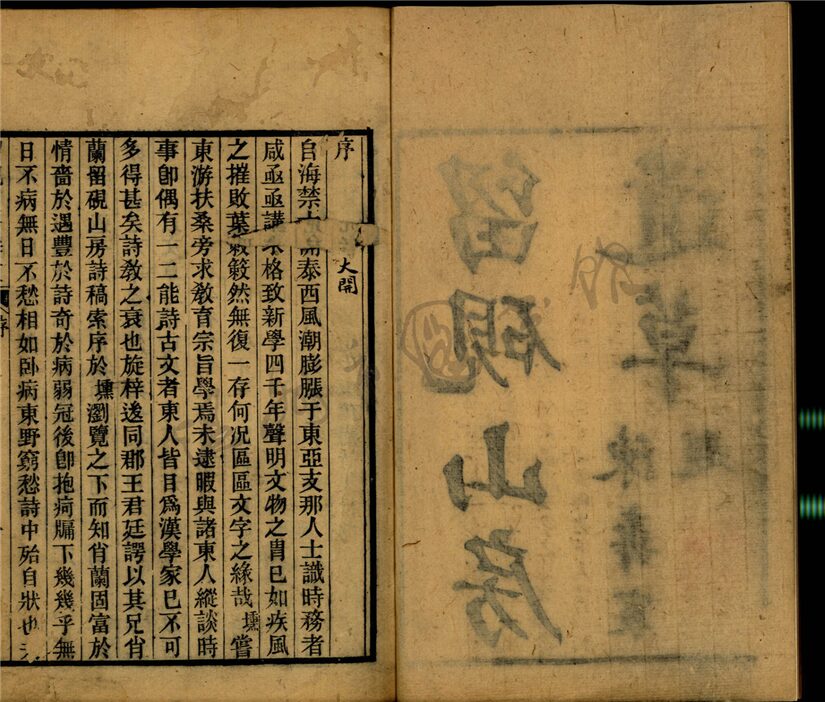 留硯山房
遺草
題
序
大開
自海禁大開泰西風潮膨漲于東亞支那人士識時務者
咸亟亟講求格致新學四千年聲明文物之胄已如疾風
之摧敗葉簌簌然無復一存何況區區文字之緣哉壎嘗
東游扶桑旁求敎育宗旨學焉未逮暇與諸東人縱談時
事卽偶有一二能詩古文者東人皆目爲漢學家已不可
多得甚矣詩敎之衰也旋梓遂同郡王君廷諤以其兄肖
蘭留硯山房詩稿索序於壎瀏覽之下而知肖蘭固富於
情嗇於遇豐於詩奇於病弱冠後卽抱疴牖下幾幾乎無
日不病無日不愁相如臥病東野窮愁詩中殆自狀也